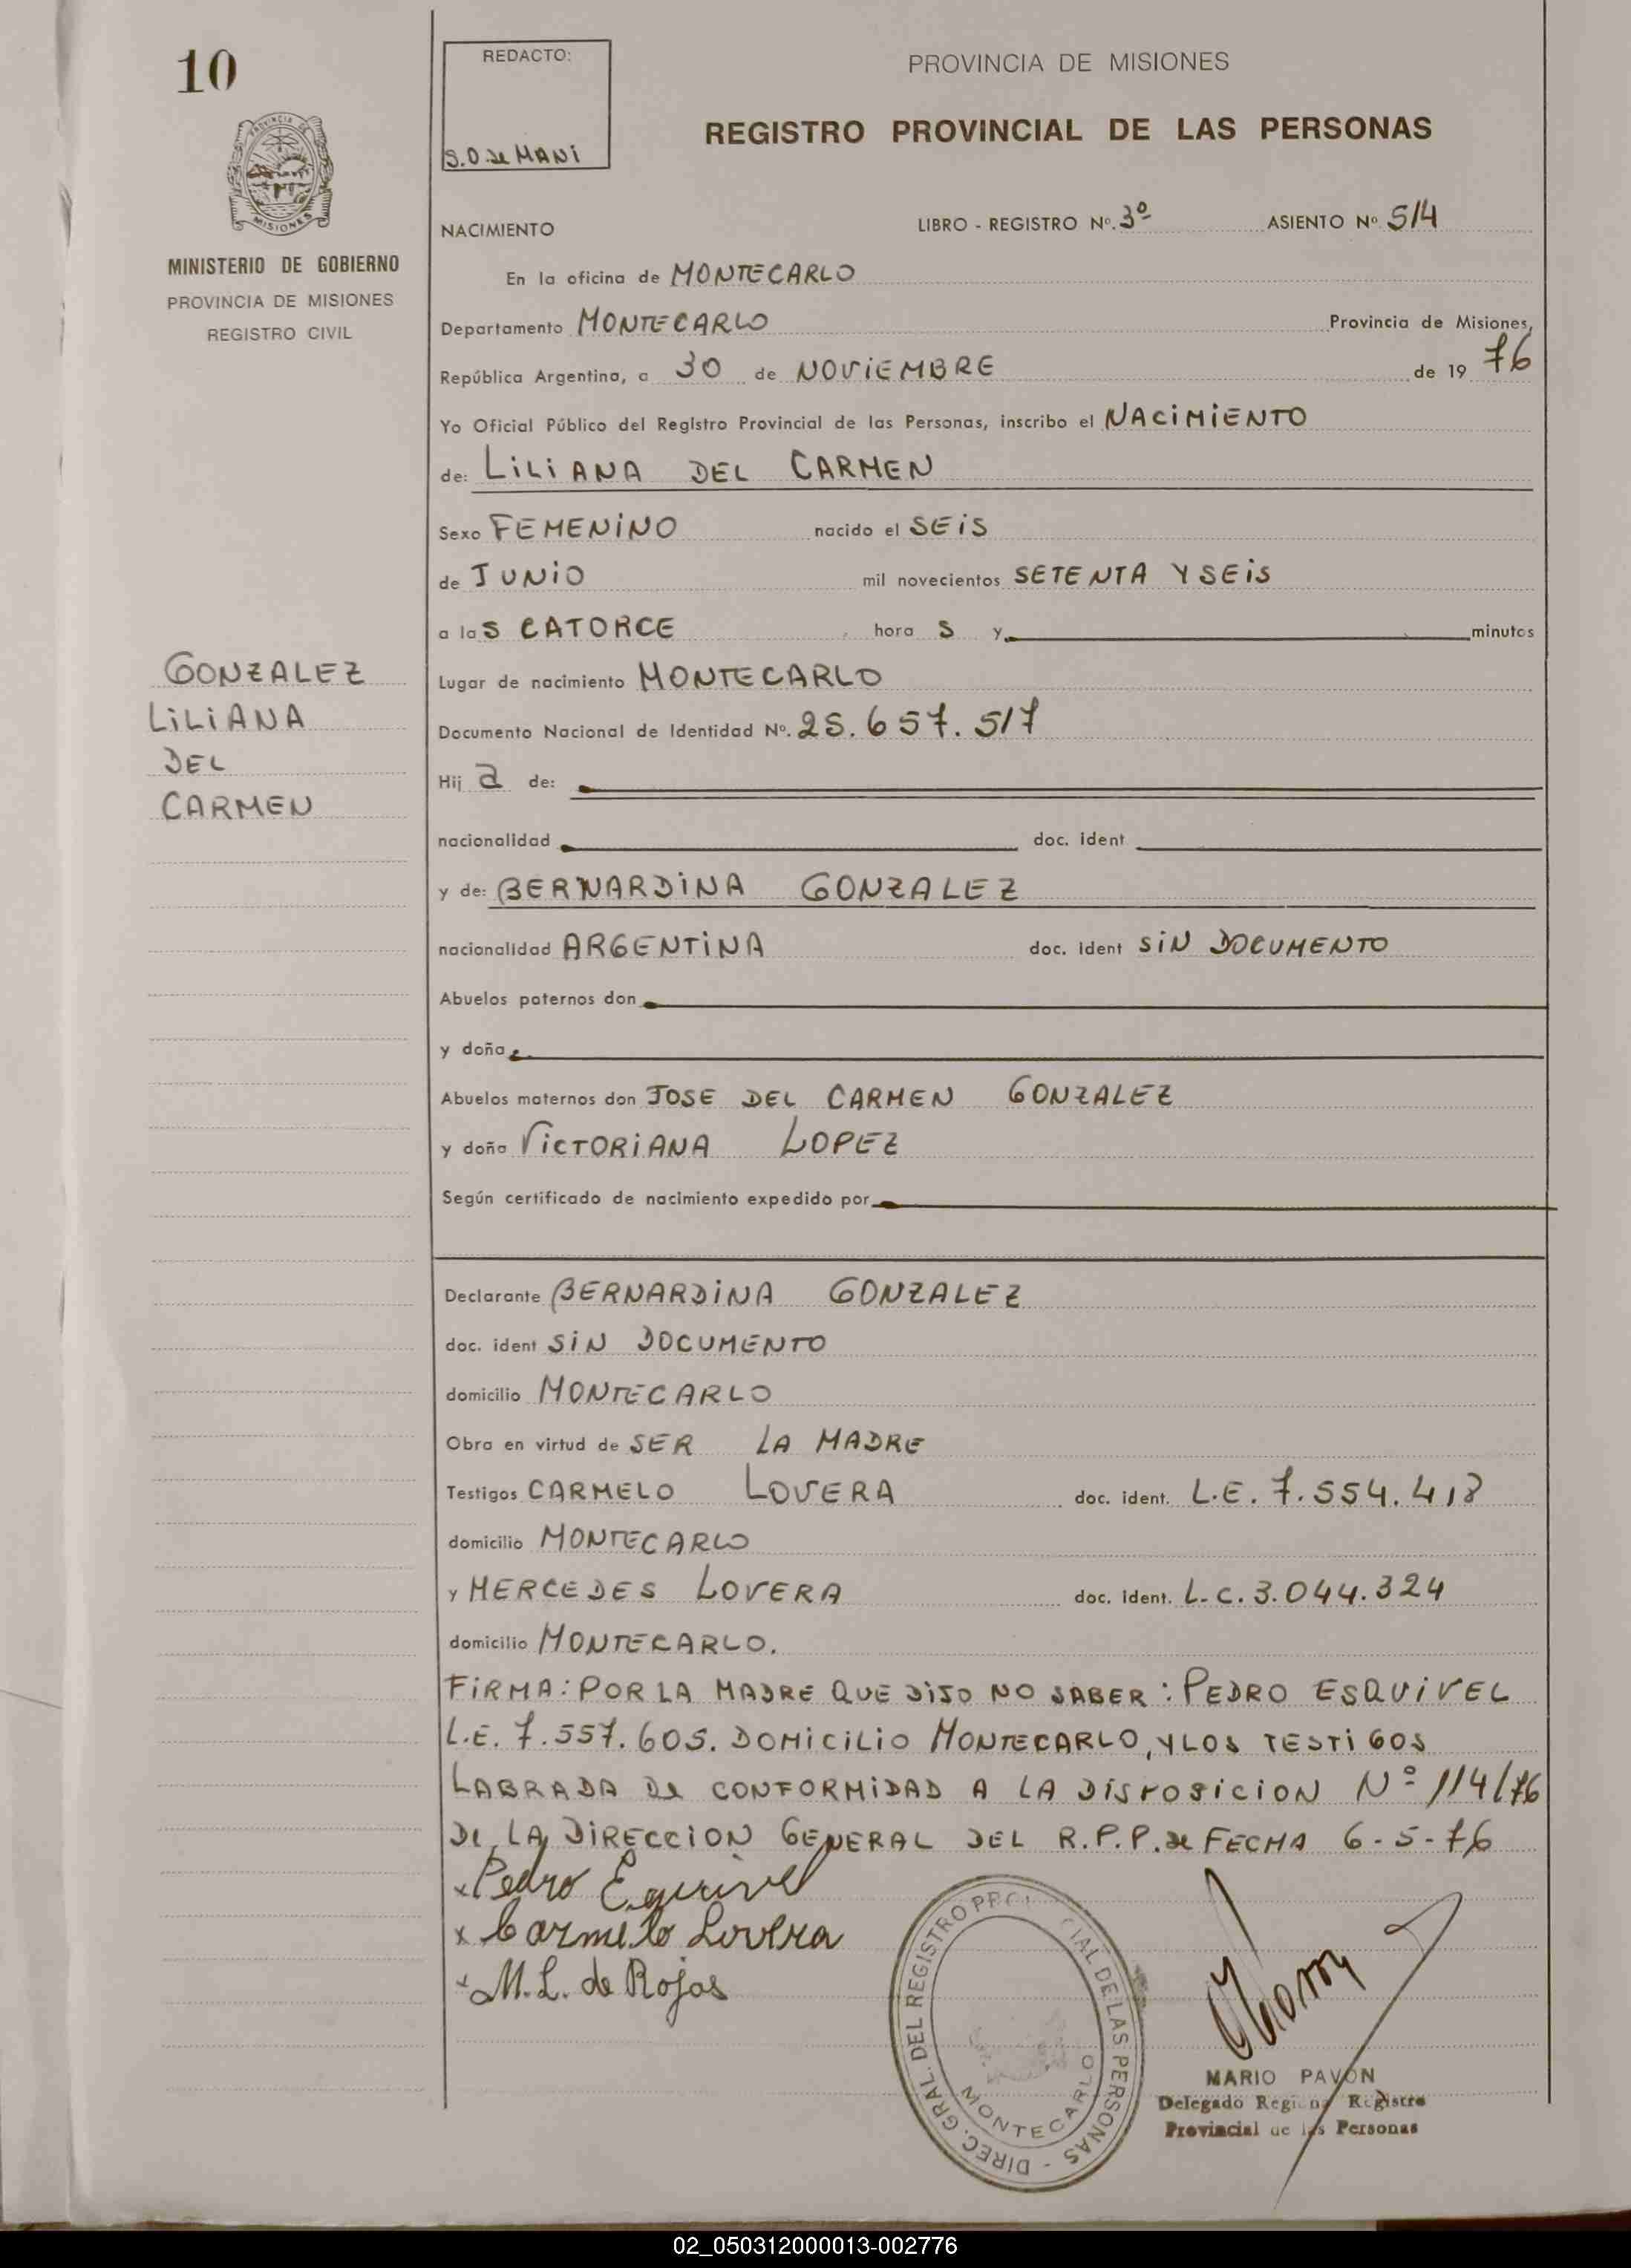 10
REDACTO:
S.O. de MANI
PROVINCIA DE MISIONES
REGISTRO PROVINCIAL DE LAS PERSONAS
PROVINCIA DE
MISIONES
MINISTERIO DE GOBIERNO
PROVINCIA DE MISIONES
REGISTRO CIVIL
NACIMIENTO LIBRO - REGISTRO Nº. 3º ASIENTO Nº 514
En la oficina de MONTECARLO
Departamento MONTECARLO Provincia de Misiones,
República Argentina, a 30 de NOViEMBRE de 19 76
Yo Oficial Público del Registro Provincial de las Personas, inscribo el NACiMiENTO
de: LiLiANA DEL CARMEN
Sexo FEMENiNO nacido el SEiS
de JUNiO mil novecientos SETENTA Y SEiS
a las CATORCE hora S y minutos
Lugar de nacimiento MONTECARLO
Documento Nacional de Identidad Nº. 25.657.517
GONZALEZ
LiLiANA
DEL
CARMEN
Hij a de:
nacionalidad doc. ident
y de: BERNARDiNA GONZALEZ
nacionalidad ARGENTiNA doc. ident SiN DOCUMENTO
Abuelos paternos don
y doña
Abuelos maternos don JOSE DEL CARMEN GONZALEZ
y doña ViCTORiANA LOPEZ
Según certificado de nacimiento expedido por
Declarante BERNARDiNA GONZALEZ
doc. ident SiN DOCUMENTO
domicilio MONTECARLO
Obra en virtud de SER LA MADRE
Testigos CARMELO LOVERA doc. ident. L.E. 7.554.418
domicilio MONTECARLO
y MERCEDES LOVERA doc. ident. L.C. 3.044.324
domicilio MONTECARLO.
FiRMA: POR LA MADRE QUE DiJO NO SABER: PEDRO ESQUiVEL
L.E. 7.557.605. DOMiCiLiO MONTECARLO, Y LOS TESTiGOS
LABRADA DE CONFORMiDAD A LA DiSPOSiCiON Nº 114/76
DE LA DiRECCiON GENERAL DEL R.P.P. de FECHA 6-5-76
x Pedro Esquivel
x Carmelo Lovera
x M.L. de Rojas
DIREC. GRAL. DEL REGISTRO PROVINCIAL DE LAS PERSONAS -
MONTECARLO
MARIO PAVON
Delegado Regional Registro
Provincial de las Personas
02_050312000013-002776